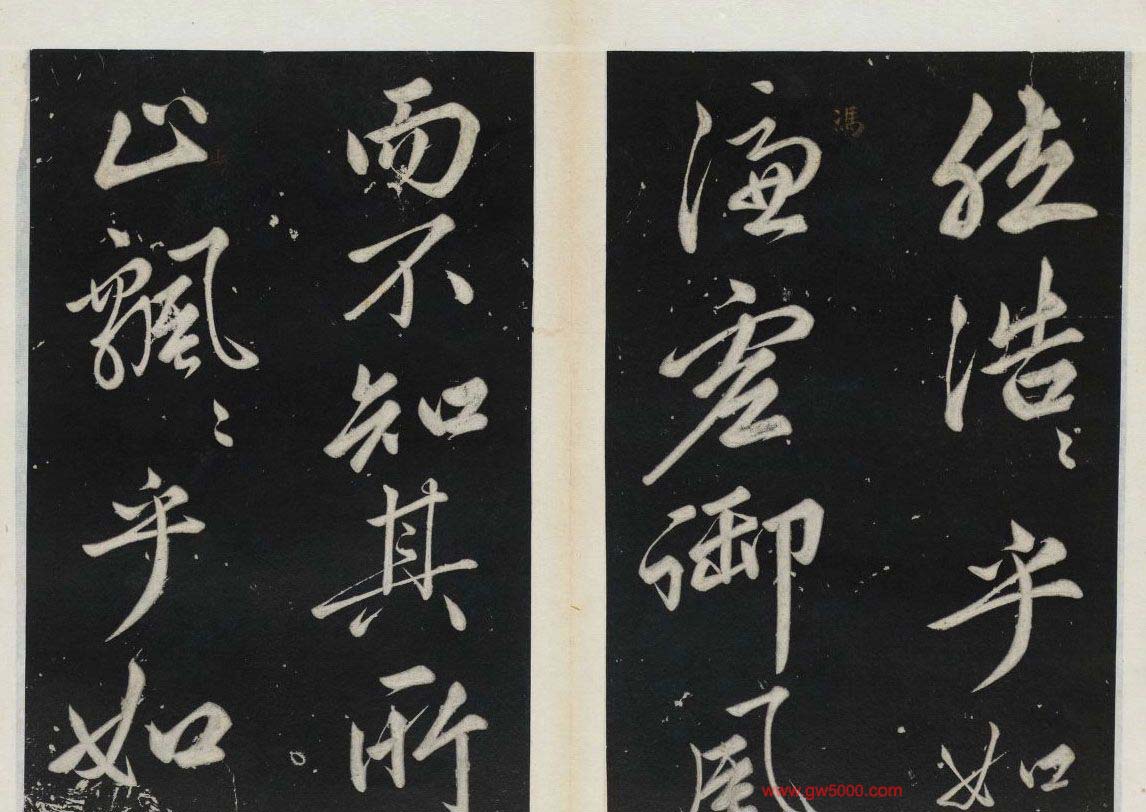 然浩〻乎如
馮
憑虛御風
而不知其所
止飄〻乎如
止
www.gw5000.com